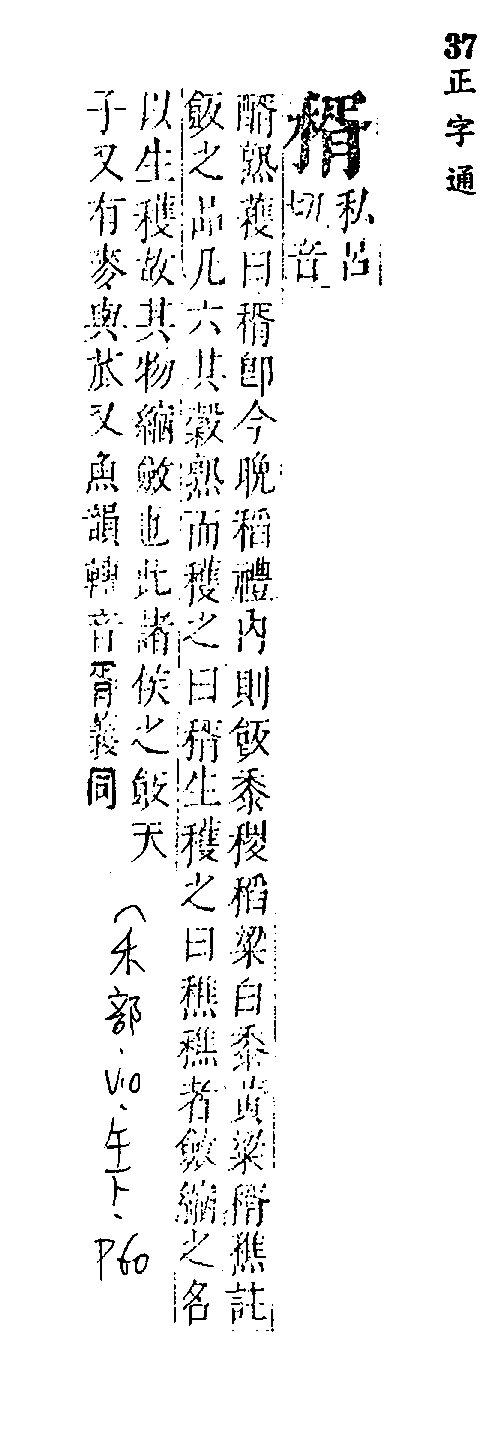 37正字通
稰
私呂
切音
醑熟穫曰稰卽今晚稻禮內則飯黍稷稻粱白黍黃粱稰穛註
飯之品凡六其穀熟而穫之曰稰生穫之曰穛穛者斂縮之名
以生穫故其物縮斂也此諸侯之飯天
子又有麥與苽又魚韻轉音胥義同
(禾部、V10、午下、P60